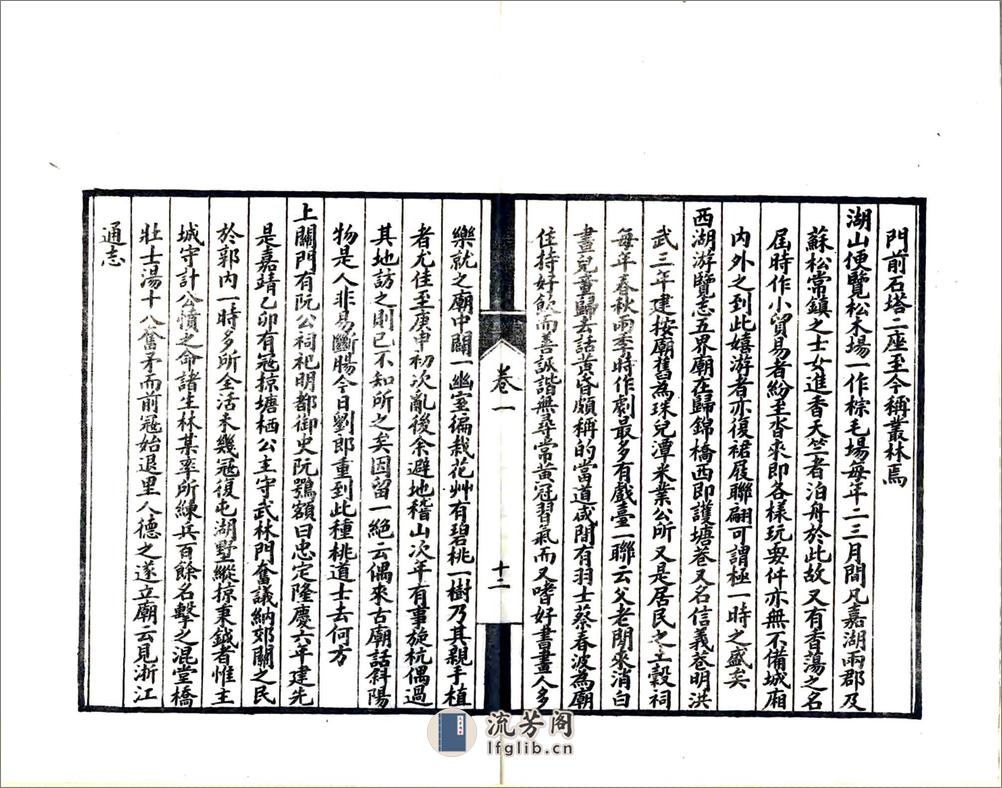 門前石塔二座至今稱叢林焉
湖山便覽松木場一作棕毛場每年二三月間凡嘉湖兩郡及
蘇松常鎮之士女進香天竺者泊舟於此故又有香蕩之名
屆時作小貿易者紛至沓來即各樣玩耍件亦無不備城廂
內外之到此嬉游者亦復裙屐聯翩可謂極一時之盛矣
西湖游覽志五界廟在歸錦橋西即護塘巷又名信義巷明洪
武三年建按廟舊為珠兒潭米業公所又是居民之土穀祠
每年春秋兩季時作劇最多有戲臺一聯云父老閒來消白
晝兒童歸去話黃昏頗稱的當道咸間有羽士蔡春波為廟
住持好飲而善詼諧無尋常黃冠習氣而又嗜好書畫人多
卷一
十二
樂就之廟中闢一幽室徧栽花艸有碧桃一樹乃其親手植
者尤佳至庚申初次亂後余避地稽山次年有事旋杭偶過
其地訪之則已不知所之矣因留一絕云偶來古廟話斜陽
物是人非易斷腸今日劉郎重到此種桃道士去何方
上關門有阮公祠祀明都御史阮鶚額曰忠定隆慶六年建先
是嘉靖乙卯有冦掠塘栖公主守武林門奮議納郊關之民
於郭內一時多所全活未幾冦復屯湖墅縱掠秉鉞者惟主
城守計公憤之命諸生林某率所練兵百餘名擊之混堂橋
壯士湯十八奮矛而前冦始退里人德之遂立廟云見浙江
通志
流芳阁
lfglib.cn